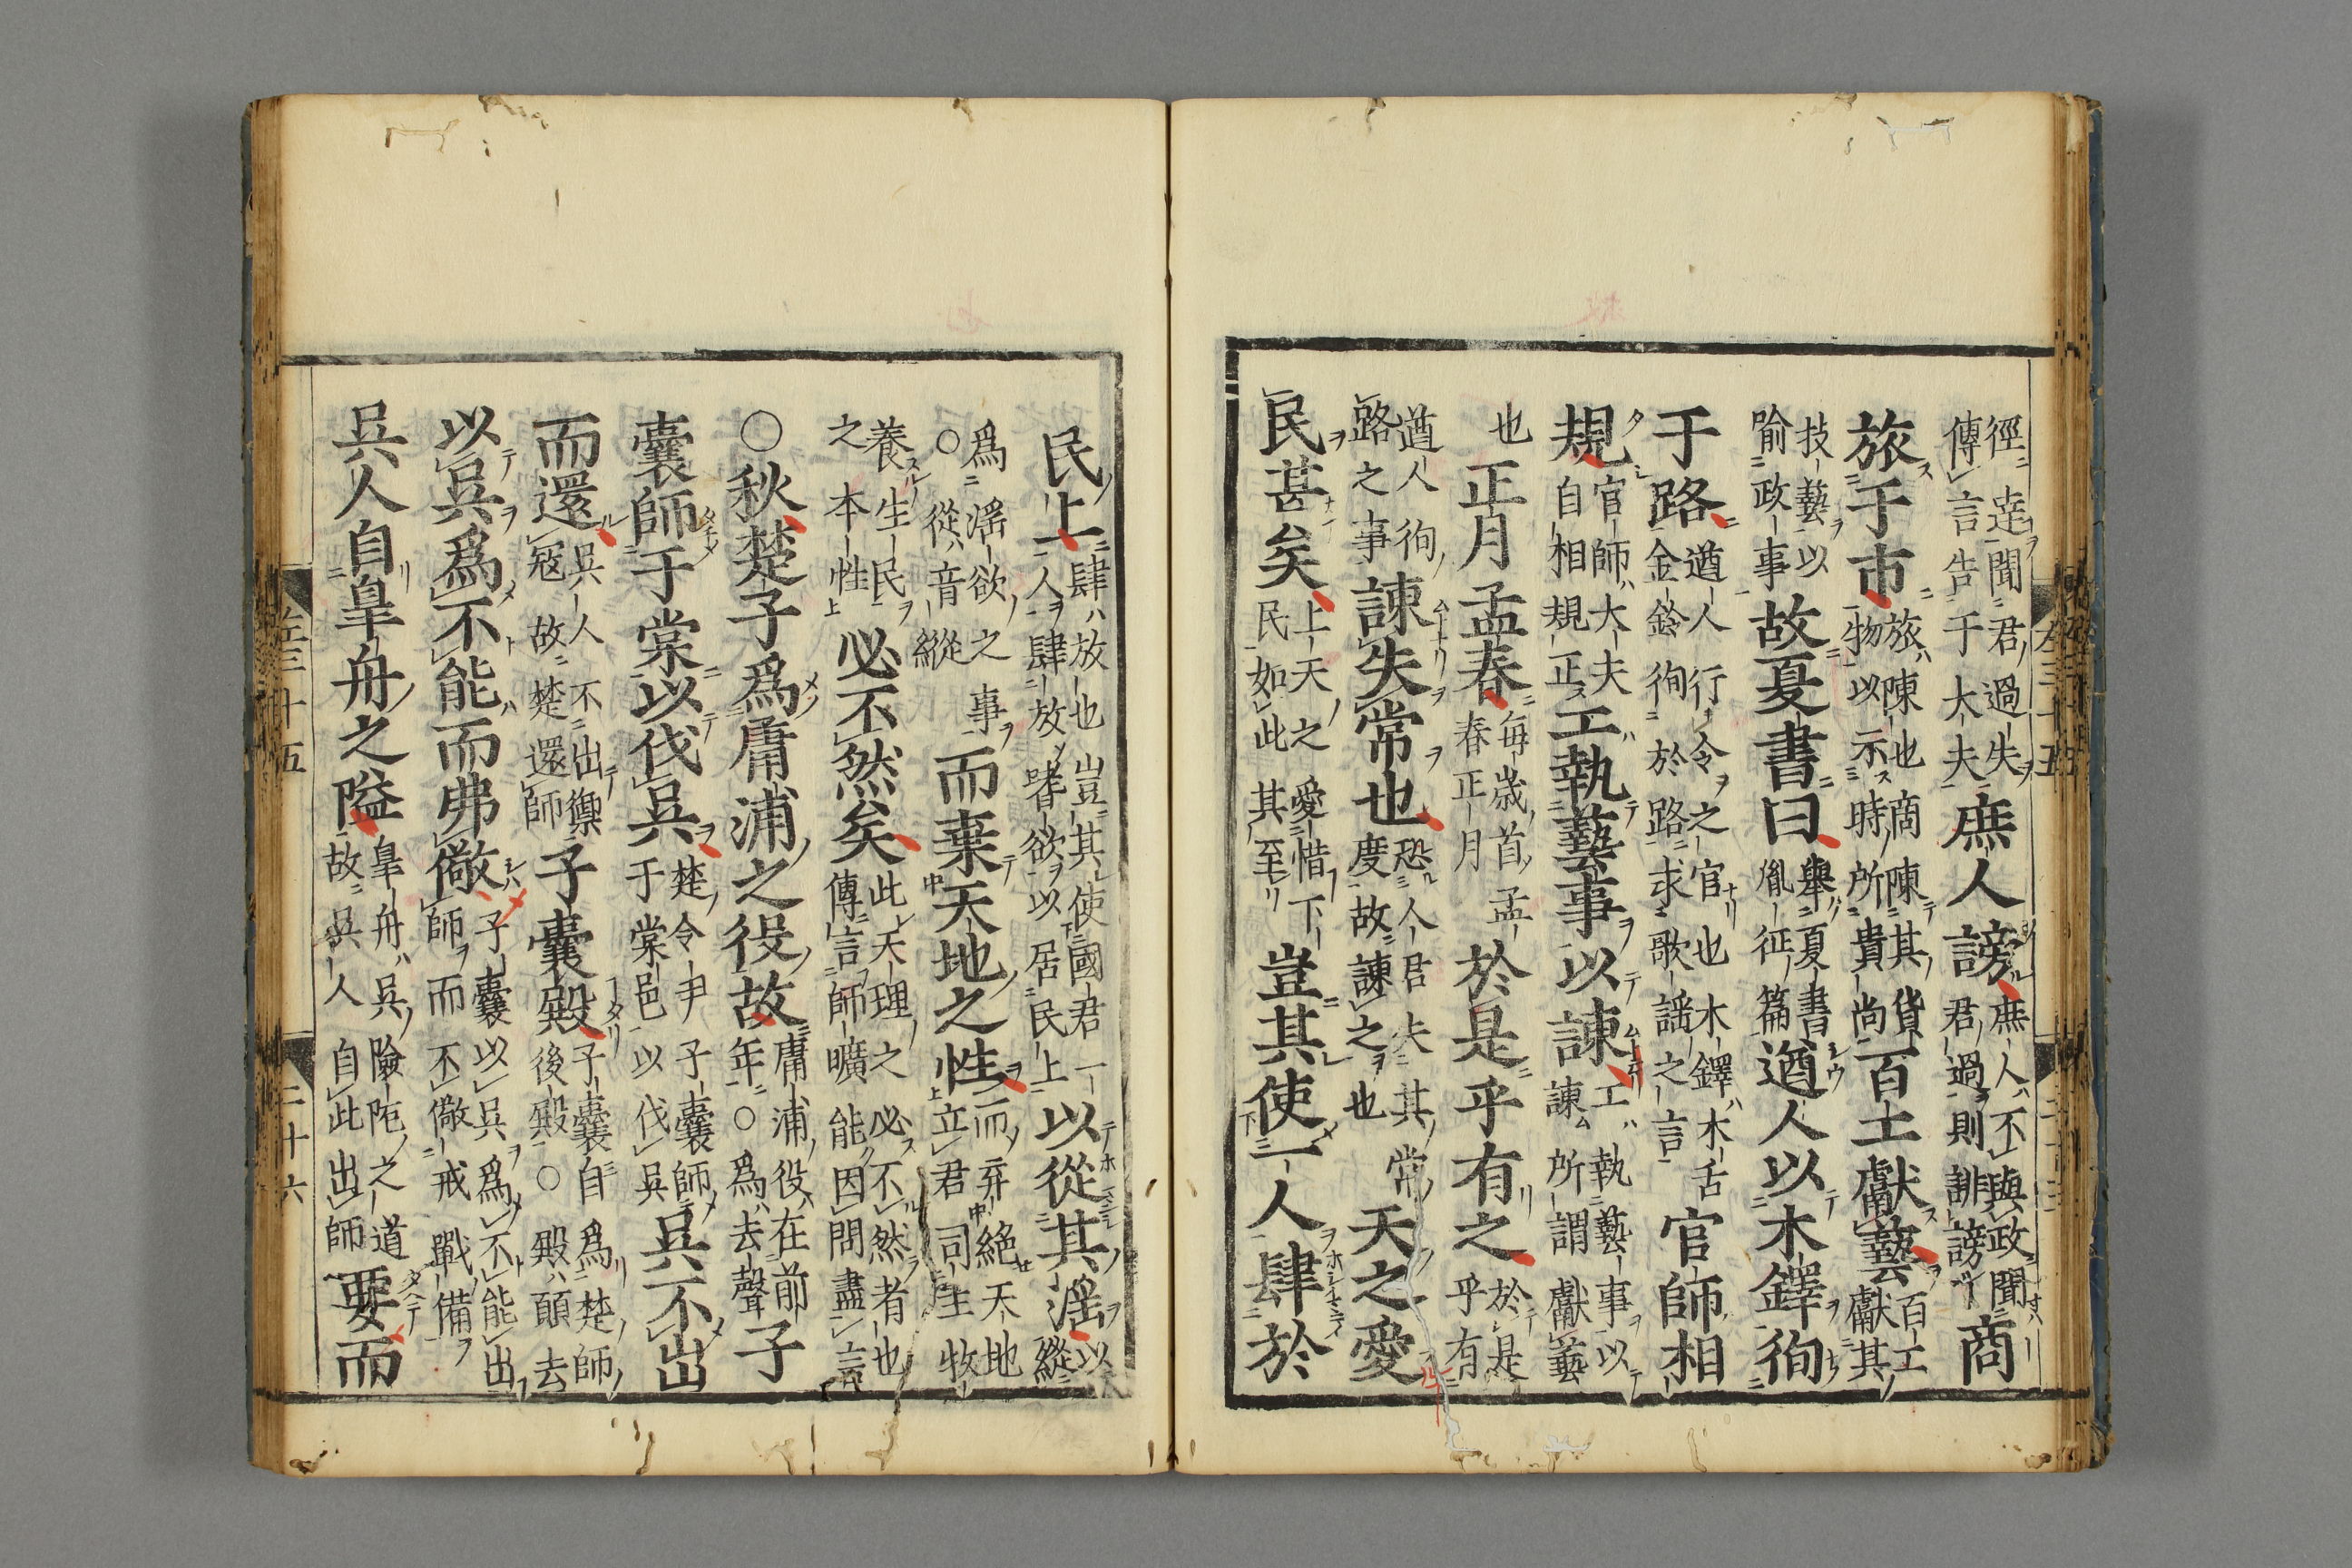 徑逹聞君過失傳言告于大夫庶人謗庶人不與政聞君過則誹謗商
旅于市旅陳也商陳其貨物以示時所貴尚百工獻藝百工獻其
技藝以喻政事故夏書曰舉夏書胤征篇遒人以木鐸徇
于路遒人行令之官也木鐸木舌金鈴徇於路求歌謡之言官師相
規官師大夫自相規正工執藝事以諫工執藝事以諫所謂獻藝
也正月孟春毎歳首孟春正月於是乎有之於是乎有
遒人徇路之事諫失常也恐人君失其常度故諫之也天之愛
民甚矣上天之愛惜下民如此其至豈其使一人肆於
民上肆放也豈其使國君一人肆放嗜欲以居民上以從其淫以縱
爲淫欲之事○從音縱而棄天地之性而弃絶天地立君司主牧
養生民之本性必不然矣此天理之必不然者也傳言師曠能因問盡言
○秋楚子爲庸浦之役故庸浦役在前年○爲去聲子
囊師于棠以伐吳楚令尹子囊師于棠邑以伐吳吳不出
而還吳人不出禦冦故楚還師子囊殿子囊自爲楚師後殿○殿顛去
以吳爲不能而弗儆子囊以吳爲不能出師而不儆戒戰備
吳人自臯舟之隘臯舟吳險阨之道故吳人自此出師要而
左三十五
二十六